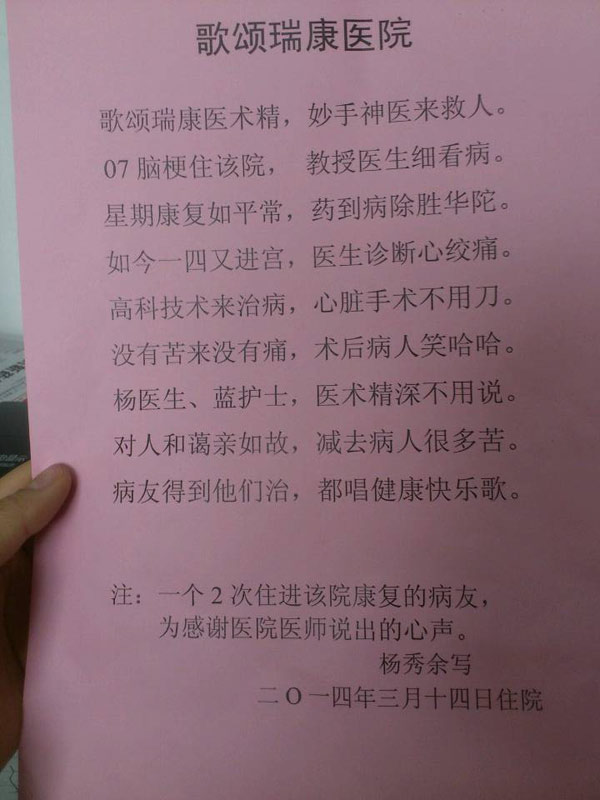 歌颂瑞康医院
歌颂瑞康医术精，妙手神医来救人。
07 脑梗住该院， 教授医生细看病。
星期康复如平常，药到病除胜华陀。
如今一四又进宫，医生诊断心绞痛。
高科技术来治病，心脏手术不用刀。
没有苦来没有痛，术后病人笑哈哈。
杨医生、蓝护士，医术精深不用说。
对人和蔼亲如故，减去病人很多苦。
病友得到他们治，都唱健康快乐歌。
注：一个 2 次住进该院康复的病友，
为感谢医院医师说出的心声。
杨秀余写
二 O 一四年三月十四日住院